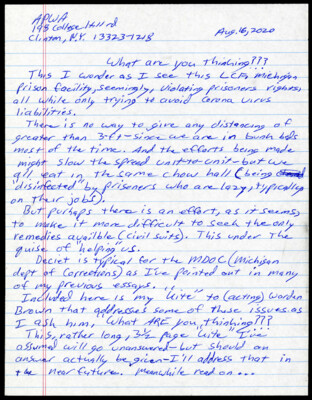 APWA
198 College Hill rd
Clinton, N.Y. 13323-1218
Aug. 16, 2020
What are you thinking???
This I wonder as I see this LCF, Michigan
prison facility, seemingly, violating prisoners rights,
all while only trying to avoid Corona virus
liabilities.
There is no way to give any distancing of
greater than 3-ft - since we are in bunk beds
most of the time. And the efforts being made
might slow the spread unit-to-unit - but we
all eat in the same chow hall (being
disinfected" by prisoners who are lazy, typically
on their jobs).
But perhaps there is an effort, as it seems,
to make it more difficult to seek the only
remedies availible (civil suits). This under the
guise of "helping" us.
Deciet is typical for the MDOC (Michigan
dept of Corrections) as I've pointed out in many
of my previous essays...
Included here is my "kite" to (acting) Warden
Brown that addresses some of these issues as
I ask him, "What ARE you thinking???
This, rather long, 3½ page "kite" I've
assumed will go unanswered - but should an
answer actually be given - I'll address that in
the near future. Meanwhile read on...